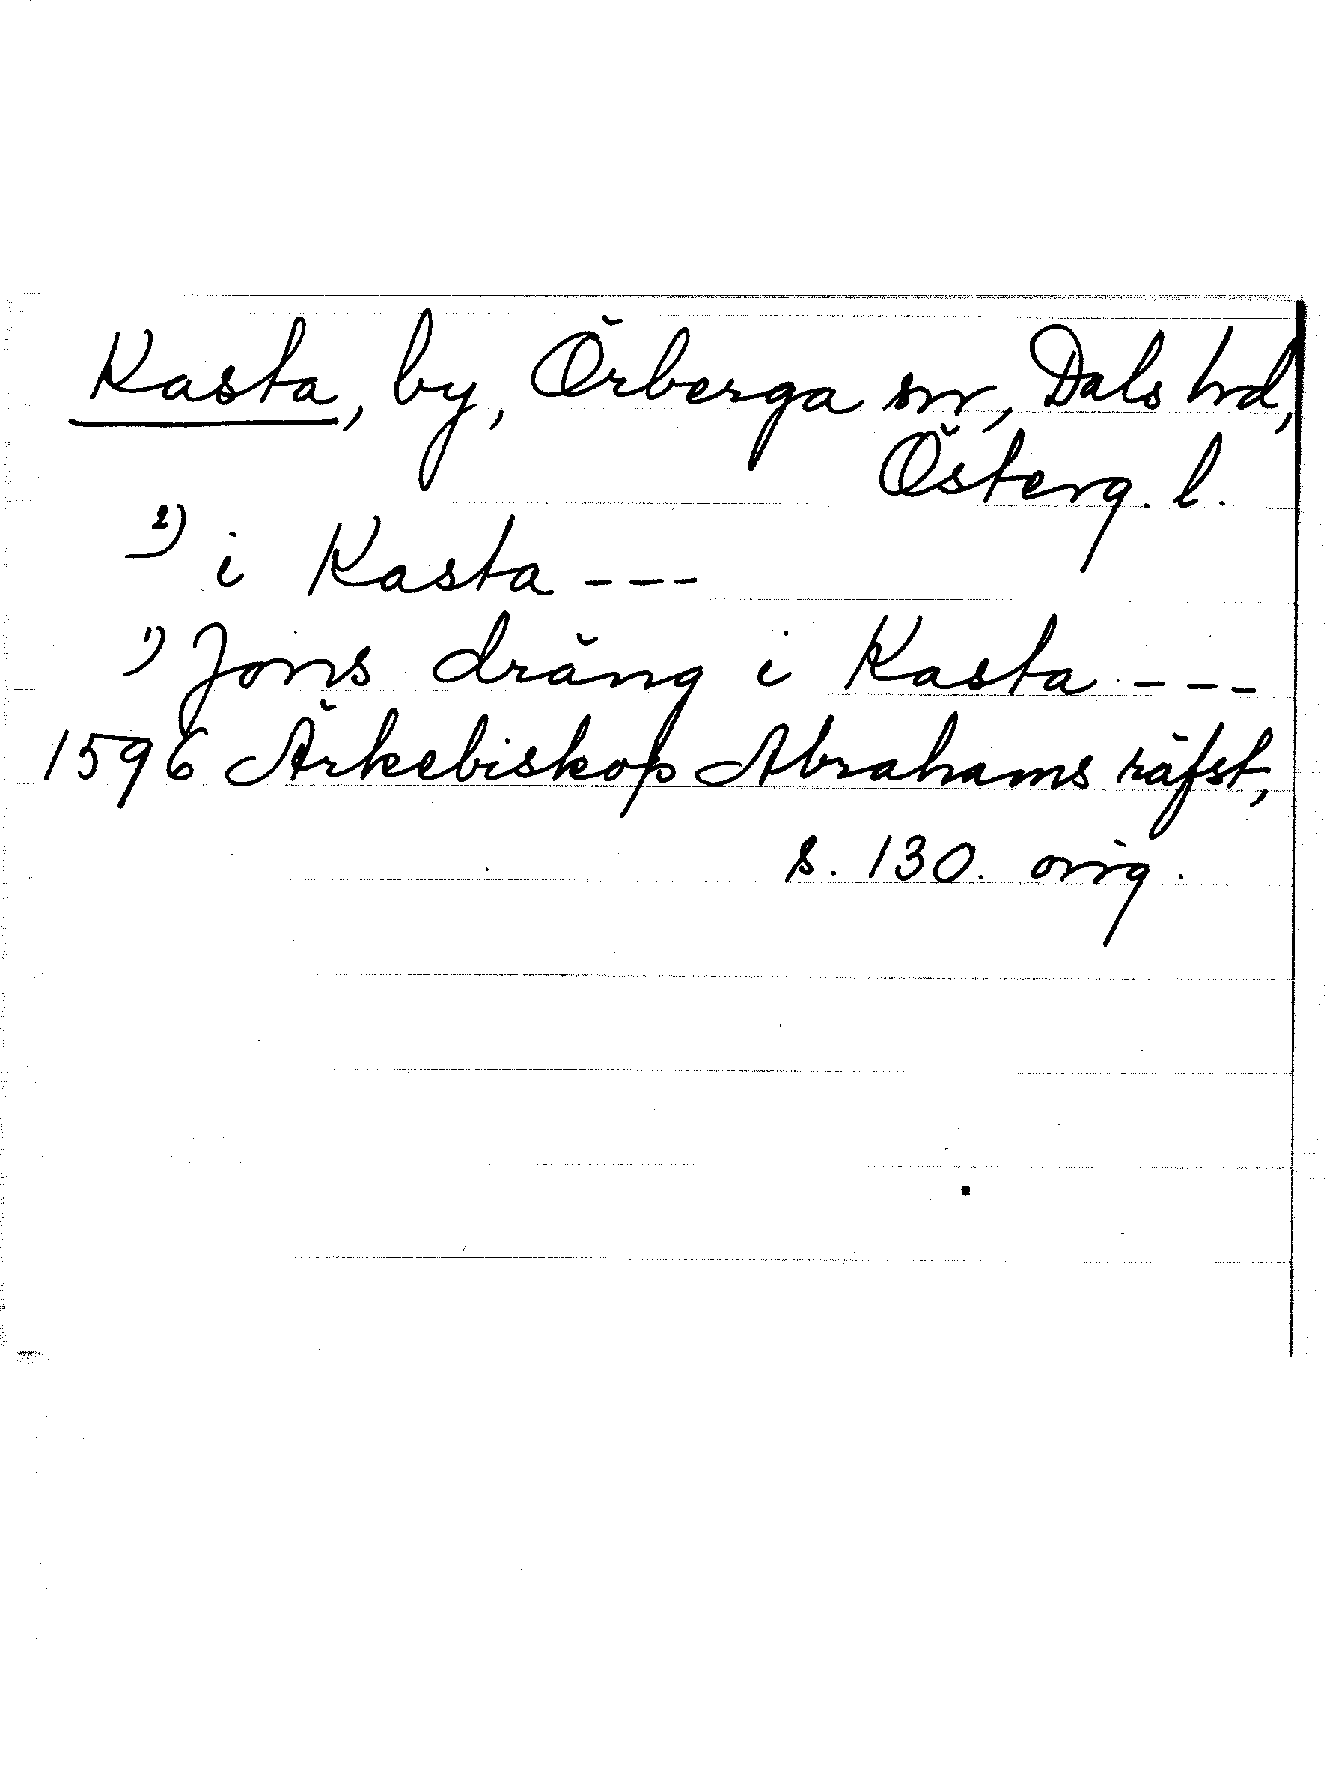 Kasta, by, Örberga sn, Dals hd,
Österg. l.
2) i Kasta ---
1) Jöns dräng i Kasta ---
1596 Ärkebiskop Abrahams räfst,
s. 130. orig.